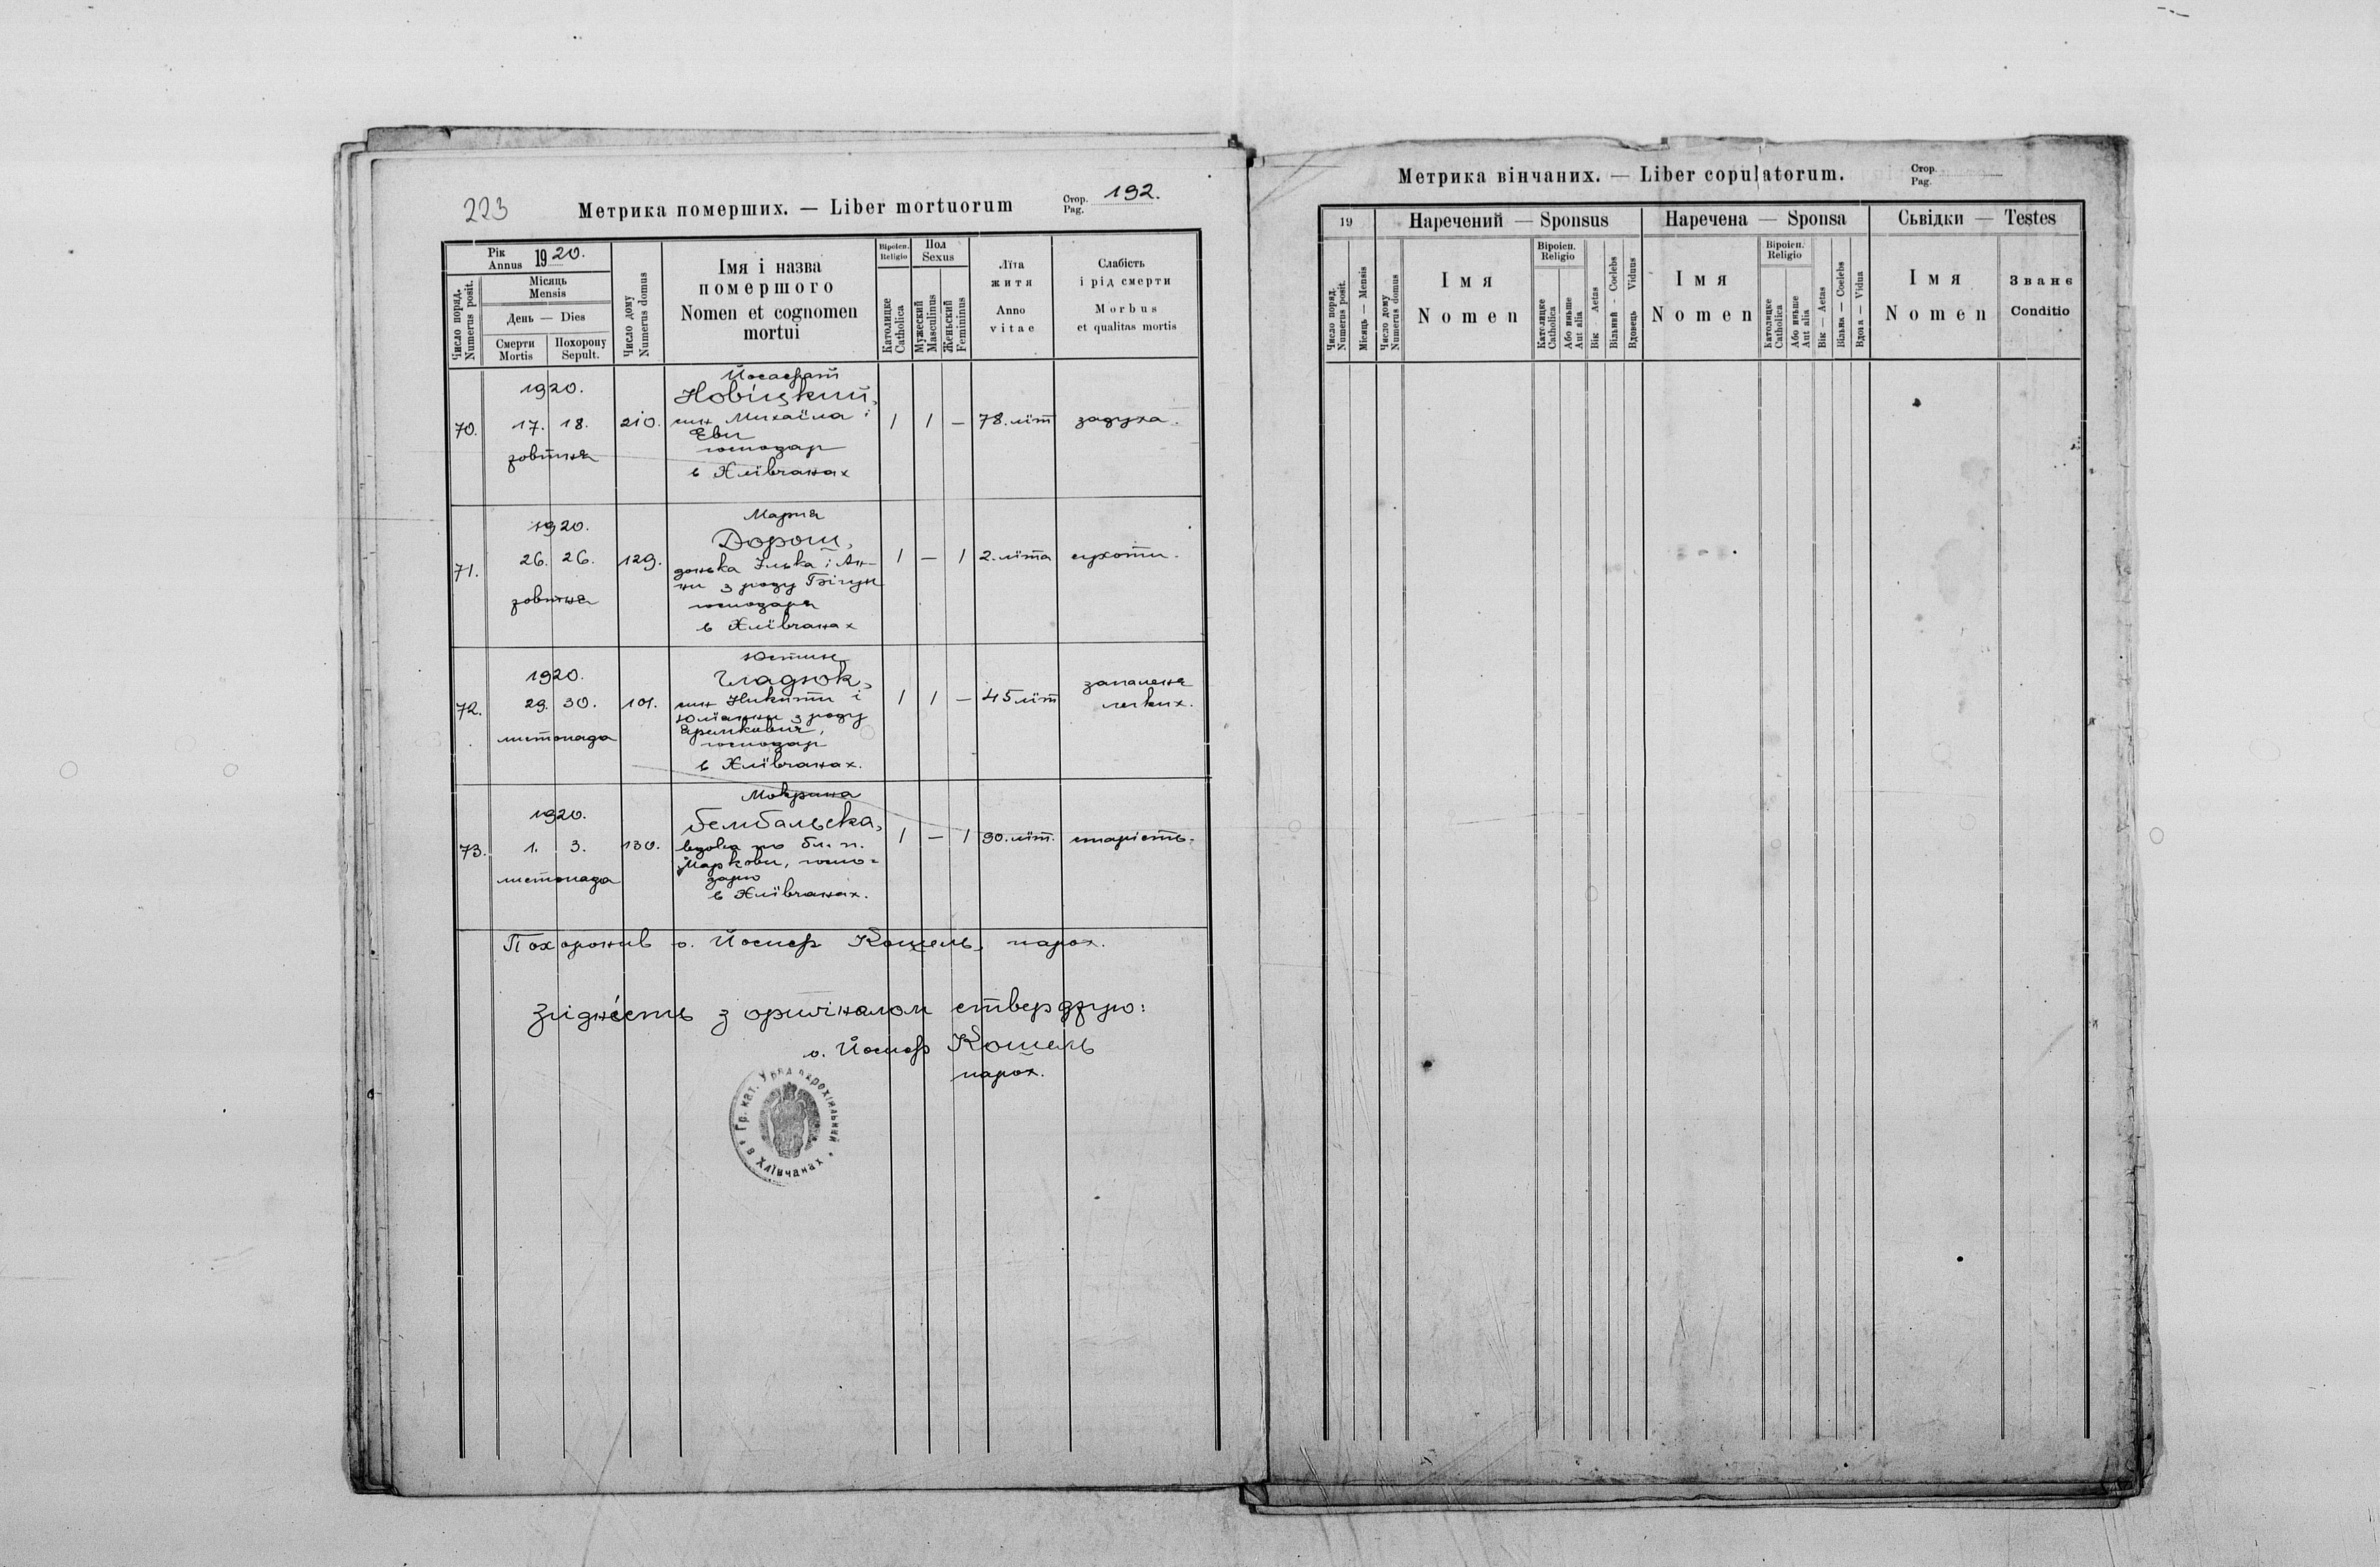 223
Метрика померших. — Liber mortuorum
Стор. Pag. 192.
Рік Annus 1920.
Місяць Mensis
День — Dies
Число поряд. Numerus posit.
Смерти Mortis
Похорону Sepult.
Число дому Numerus domus
Імя і назва
помершого
Nomen et cognomen
mortui
Віроісп. Religio
Католицке Catholica
Пол Sexus
Мужеский Masculinus
Женьский Femininus
Лїта
житя
Anno
vitae
Слабість
і рід смерти
Morbus
et qualitas mortis
1920.
Йосафат
Новіцкий,
70. 17. 18. 210. син Михаїла і 1 1 — 78. лїт задуха.
Еви
жовтня господар
в Хлївчанах
1920.
Мария
Дорош,
71. 26. 26. 129. донька Ілька і Ан- 1 — 1 2. лїта сухоти.
ни з роду
жовтня господаря
в Хлївчанах
1920.
Юстин
Гладюк,
72. 29. 30. 101. син Никити і 1 1 — 45 лїт запаленя легких.
Юлїанни з роду
листопада господар
в Хлївчанах.
1920.
Мокрина
Бембальска,
73. 1. 3. 130. вдова по бл. п. 1 — 1 90. лїт. старість.
Маркови, госпо-
листопада дарю
в Хлївчанах.
Похоронив о. Йосиф Кошель, парох.
Згідність з оригіналом стверджую:
о. Йосиф Кошель
парох.
Гр. кат. Уряд парохіяльний
в Хлївчанах
Метрика вінчаних. — Liber copulatorum.
Стор. Pag.
19
Наречений — Sponsus
Наречена — Sponsa
Сьвідки — Testes
Число поряд. Numerus posit.
Місяць — Mensis
Число дому Numerus domus
Імя
Nomen
Віроісп. Religio
Католицке Catholica
Або иньше Aut alia
Вік Aetas
Вільний - Coelebs
Вдовець Viduus
Імя
Nomen
Віроісп. Religio
Католицке Catholica
Або иньше Aut alia
Вік — Aetas
Вільна — Coelebs
Вдова — Vidua
Імя
Nomen
Званє
Conditio